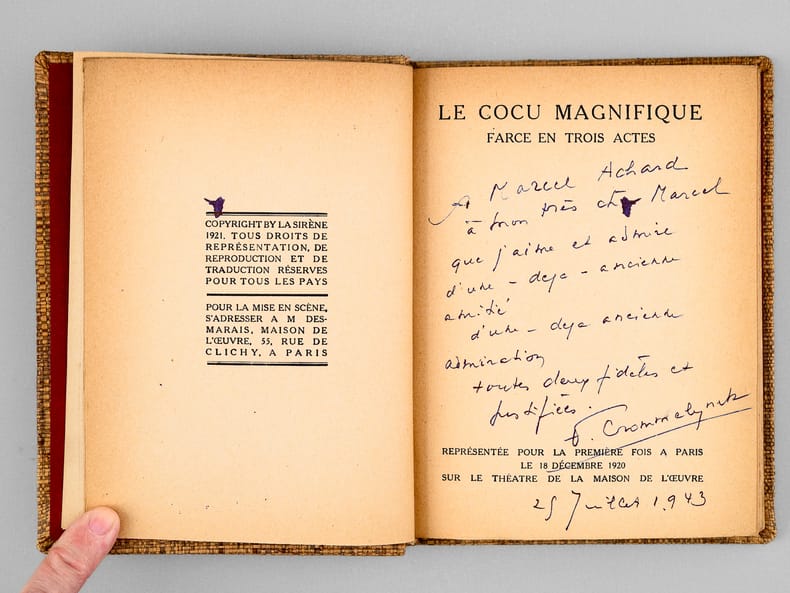 COPYRIGHT BY LA SIRÈNE
1921. TOUS DROITS DE
REPRÉSENTATION, DE
REPRODUCTION ET DE
TRADUCTION RÉSERVES
POUR TOUS LES PAYS
POUR LA MISE EN SCÈNE,
S'ADRESSER A M DES-
MARAIS, MAISON DE
L'ŒUVRE, 55, RUE DE
CLICHY, A PARIS
LE COCU MAGNIFIQUE
FARCE EN TROIS ACTES
A Marcel Achard
à mon très Marcel
que j'aime et admire
d'une - deja - ancienne
amitié
d'une - deja ancienne
admiration
toutes deux fidèles et
justifiées.
F. Crommelynck
REPRÉSENTÉE POUR LA PREMIÈRE FOIS A PARIS
LE 18 DÉCEMBRE 1920
SUR LE THÉATRE DE LA MAISON DE L'ŒUVRE
25 Juillet 1943